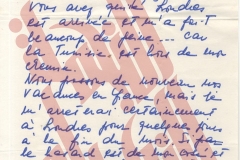 Vous avez quitté Londres
est arrivée et m'a fait
beaucoup de peine... car
la Tunisie est loin de mon
chemin.
Nous passons de nouveau nos
vacances en France, mais je
m'arrêterai certainement
à Londres pour quelques jours
à la fin du mois. Si par
le hasard est de mon côté et